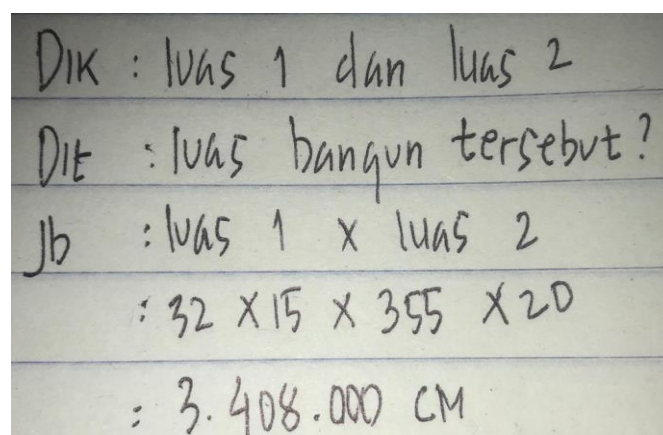 DIK : luas 1 dan luas 2
DIt : luas bangun tersebut?
Jb : luas 1 x luas 2
: 32 x 15 x 355 x 20
: 3.408.000 CM